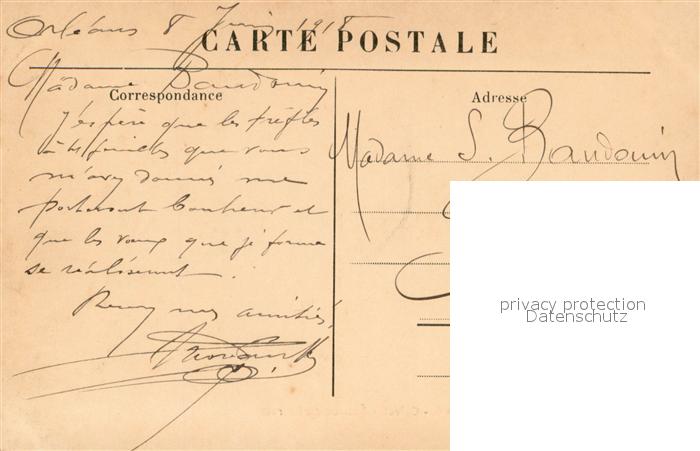 Orléans 8 Juin 1918
CARTE POSTALE
Madame Baudouin
Correspondance
J'espère que les trèfles
à 4 feuilles que vous
m'avez donnés me
porteront bonheur et
que les voeux que je forme
se réaliseront.
Recevez mes amitiés,
Adresse
Madame S. Baudouin
privacy protection
Datenschutz